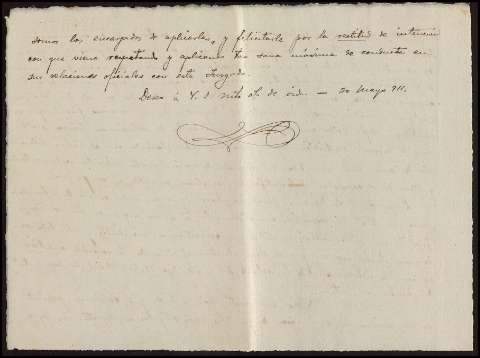 somos los encargados de aplicarla, y felicitarle por la rectitud de intención
con que viene respetando y aplicando tan sana máxima de conducta en
sus relaciones oficiales con este Juzgado.
Deseo á V. S. mil de — 20 Mayo 911.